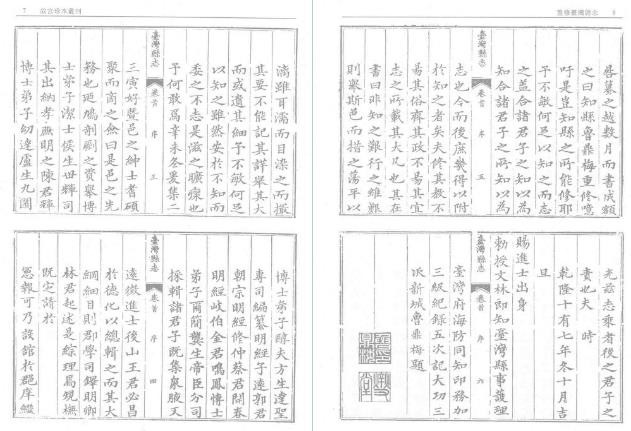 7 故宮珍本叢刊
滴雖耳濡而目染之而撮
其要不能記其詳舉其大
而或遺其細予不敏何足
以知之雖然安於不知而
委之不志是滋之曠瘝也
予何敢為辛未冬爰集二
臺灣縣志 卷首 序 三
三寅好暨邑之紳士耆碩
聚而商之僉曰是邑之先
務也廼鳩剞劂之資舉博
士弟子潔士侯生世輝司
其出納孝廉明之陳君輝
博士弟子幼達盧生九圍
博士弟子醇夫方生達聖
專司編纂明經子遠郭君
朝宗明經修仲蔡君開春
明經岐伯金君鳴鳳博士
弟子爾簡龔生帝臣分司
採輯諸君子既集裘腋又
臺灣縣志 卷首 序 四
遠徵進士後山王君必昌
於德化以總輯之而其大
綱細目則郡學司鐸明卿
林君起述是綜理焉規橅
既定請於
憲報可乃設館於邑庠縱
重修臺灣縣志 8
晷纂之越數月而書成額
之曰知縣魯鼎梅重修噫
吁是豈知縣之所能修耶
予不敏何足以知之而志
之蓋合諸君子之所知以為
知合諸君子之所志以為
臺灣縣志 卷首 序 五
志也今而後庶幾得以附
於知之者矣夫修其教不
易其俗齊其政不易其宜
志之所載其大凡也其在
書曰非知之艱行之維艱
則舉斯邑而措之蕩平以
光茲志乘者後之君子之
責也夫 時
乾隆十有七年冬十月吉
旦
賜進士出身
勅授文林郎知臺灣縣事護理
臺灣縣志 卷首 序 六
臺灣府海防同知印務加
三級紀錄五次記大功三
次新城魯鼎梅題